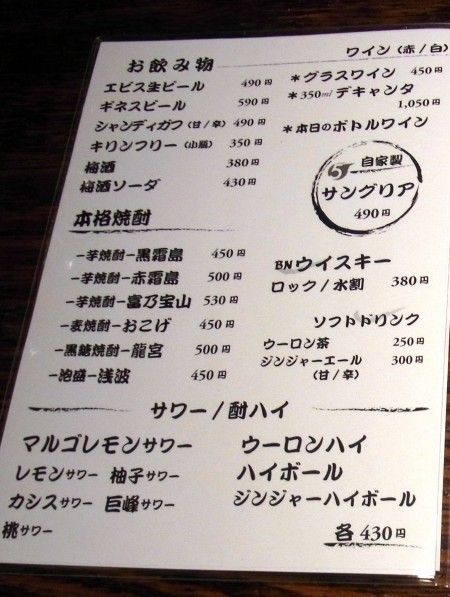 お飲み物
エビス生ビール 490円
ギネスビール 590円
シャンディガフ(甘/辛) 490円
キリンフリー(小瓶) 350円
梅酒 380円
梅酒ソーダ 430円
本格焼酎
−芋焼酎−黒霧島 450円
−芋焼酎−赤霧島 500円
−芋焼酎−富乃宝山 530円
−麦焼酎−おこげ 450円
−黒糖焼酎−龍宮 500円
−泡盛−浅波 450円
ワイン(赤/白)
*グラスワイン 450円
*350mlデキャンタ
1,050円
*本日のボトルワイン
自家製
サングリア
490円
BNウイスキー
ロック/水割 380円
ソフトドリンク
ウーロン茶 250円
ジンジャーエール 300円
(甘/辛)
サワー/酎ハイ
マルゴレモンサワー
レモンサワー 柚子サワー
カシスサワー 巨峰サワー
桃サワー
ウーロンハイ
ハイボール
ジンジャーハイボール
各430円